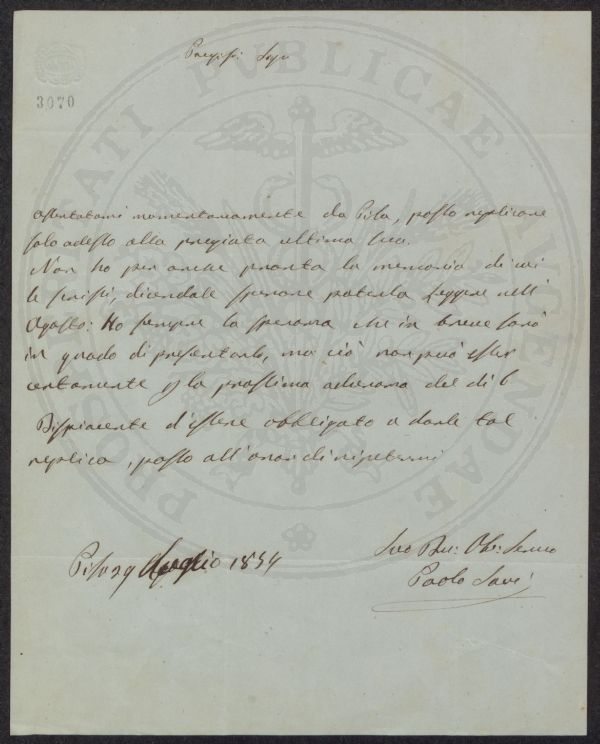 3070
Pregi. Sigr
Assentatomi momentaneamente da Pisa, posso replicare
solo adesso alla pregiata ultima sua.
Non ho per anche pronta la memoria di cui
le scrissi, dicendole sperare poterla leggere nell'
Agosto: Ho sempre la speranza che in breve sarò
in grado di presentarla, ma ciò non può esser
certamente p la prossima adunanza del dì 6
Dispiacente d'essere obbligato a darle tal
replica, posso all'onor di ripetermi
Pisa 29 Luglio 1854
Suo Dev: Ob: Servo
Paolo Savi
PROSPERITATI PUBLICAE AUGENDAE